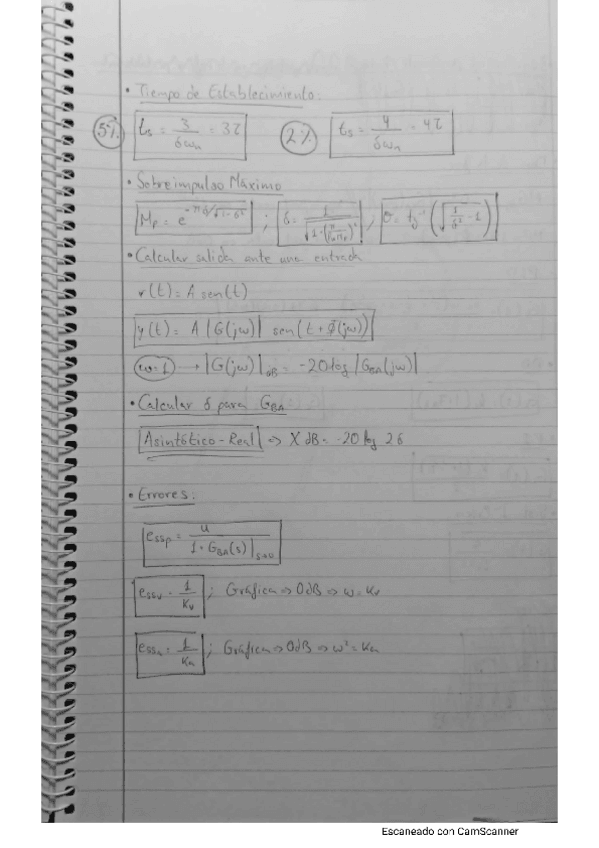 • Tiempo de Establecimiento:
5% ts = 3/δωn = 3τ 2% ts = 4/δωn = 4τ
• Sobreimpulso Máximo
Mp = e^(-πδ/√(1-δ²)) ; δ = 1/√(1+(π/ln Mp)²) ; θ = tg⁻¹(√(1/δ² - 1))
• Calcular salida ante una entrada
r(t) = A sen(t)
y(t) = A |G(jω)| sen(t + Φ(jω))
ω=1 → |G(jω)|dB = -20 log |GBA(jω)|
• Calcular δ para GBA
Asintótico - Real ⇒ X dB = -20 log 2δ
• Errores:
essp = u / 1 + GBA(s)|s→0
essv = 1/Kv ; Gráfica ⇒ 0dB ⇒ ω = Kv
essa = 1/Ka ; Gráfica ⇒ 0dB ⇒ ω² = Ka
Escaneado con CamScanner